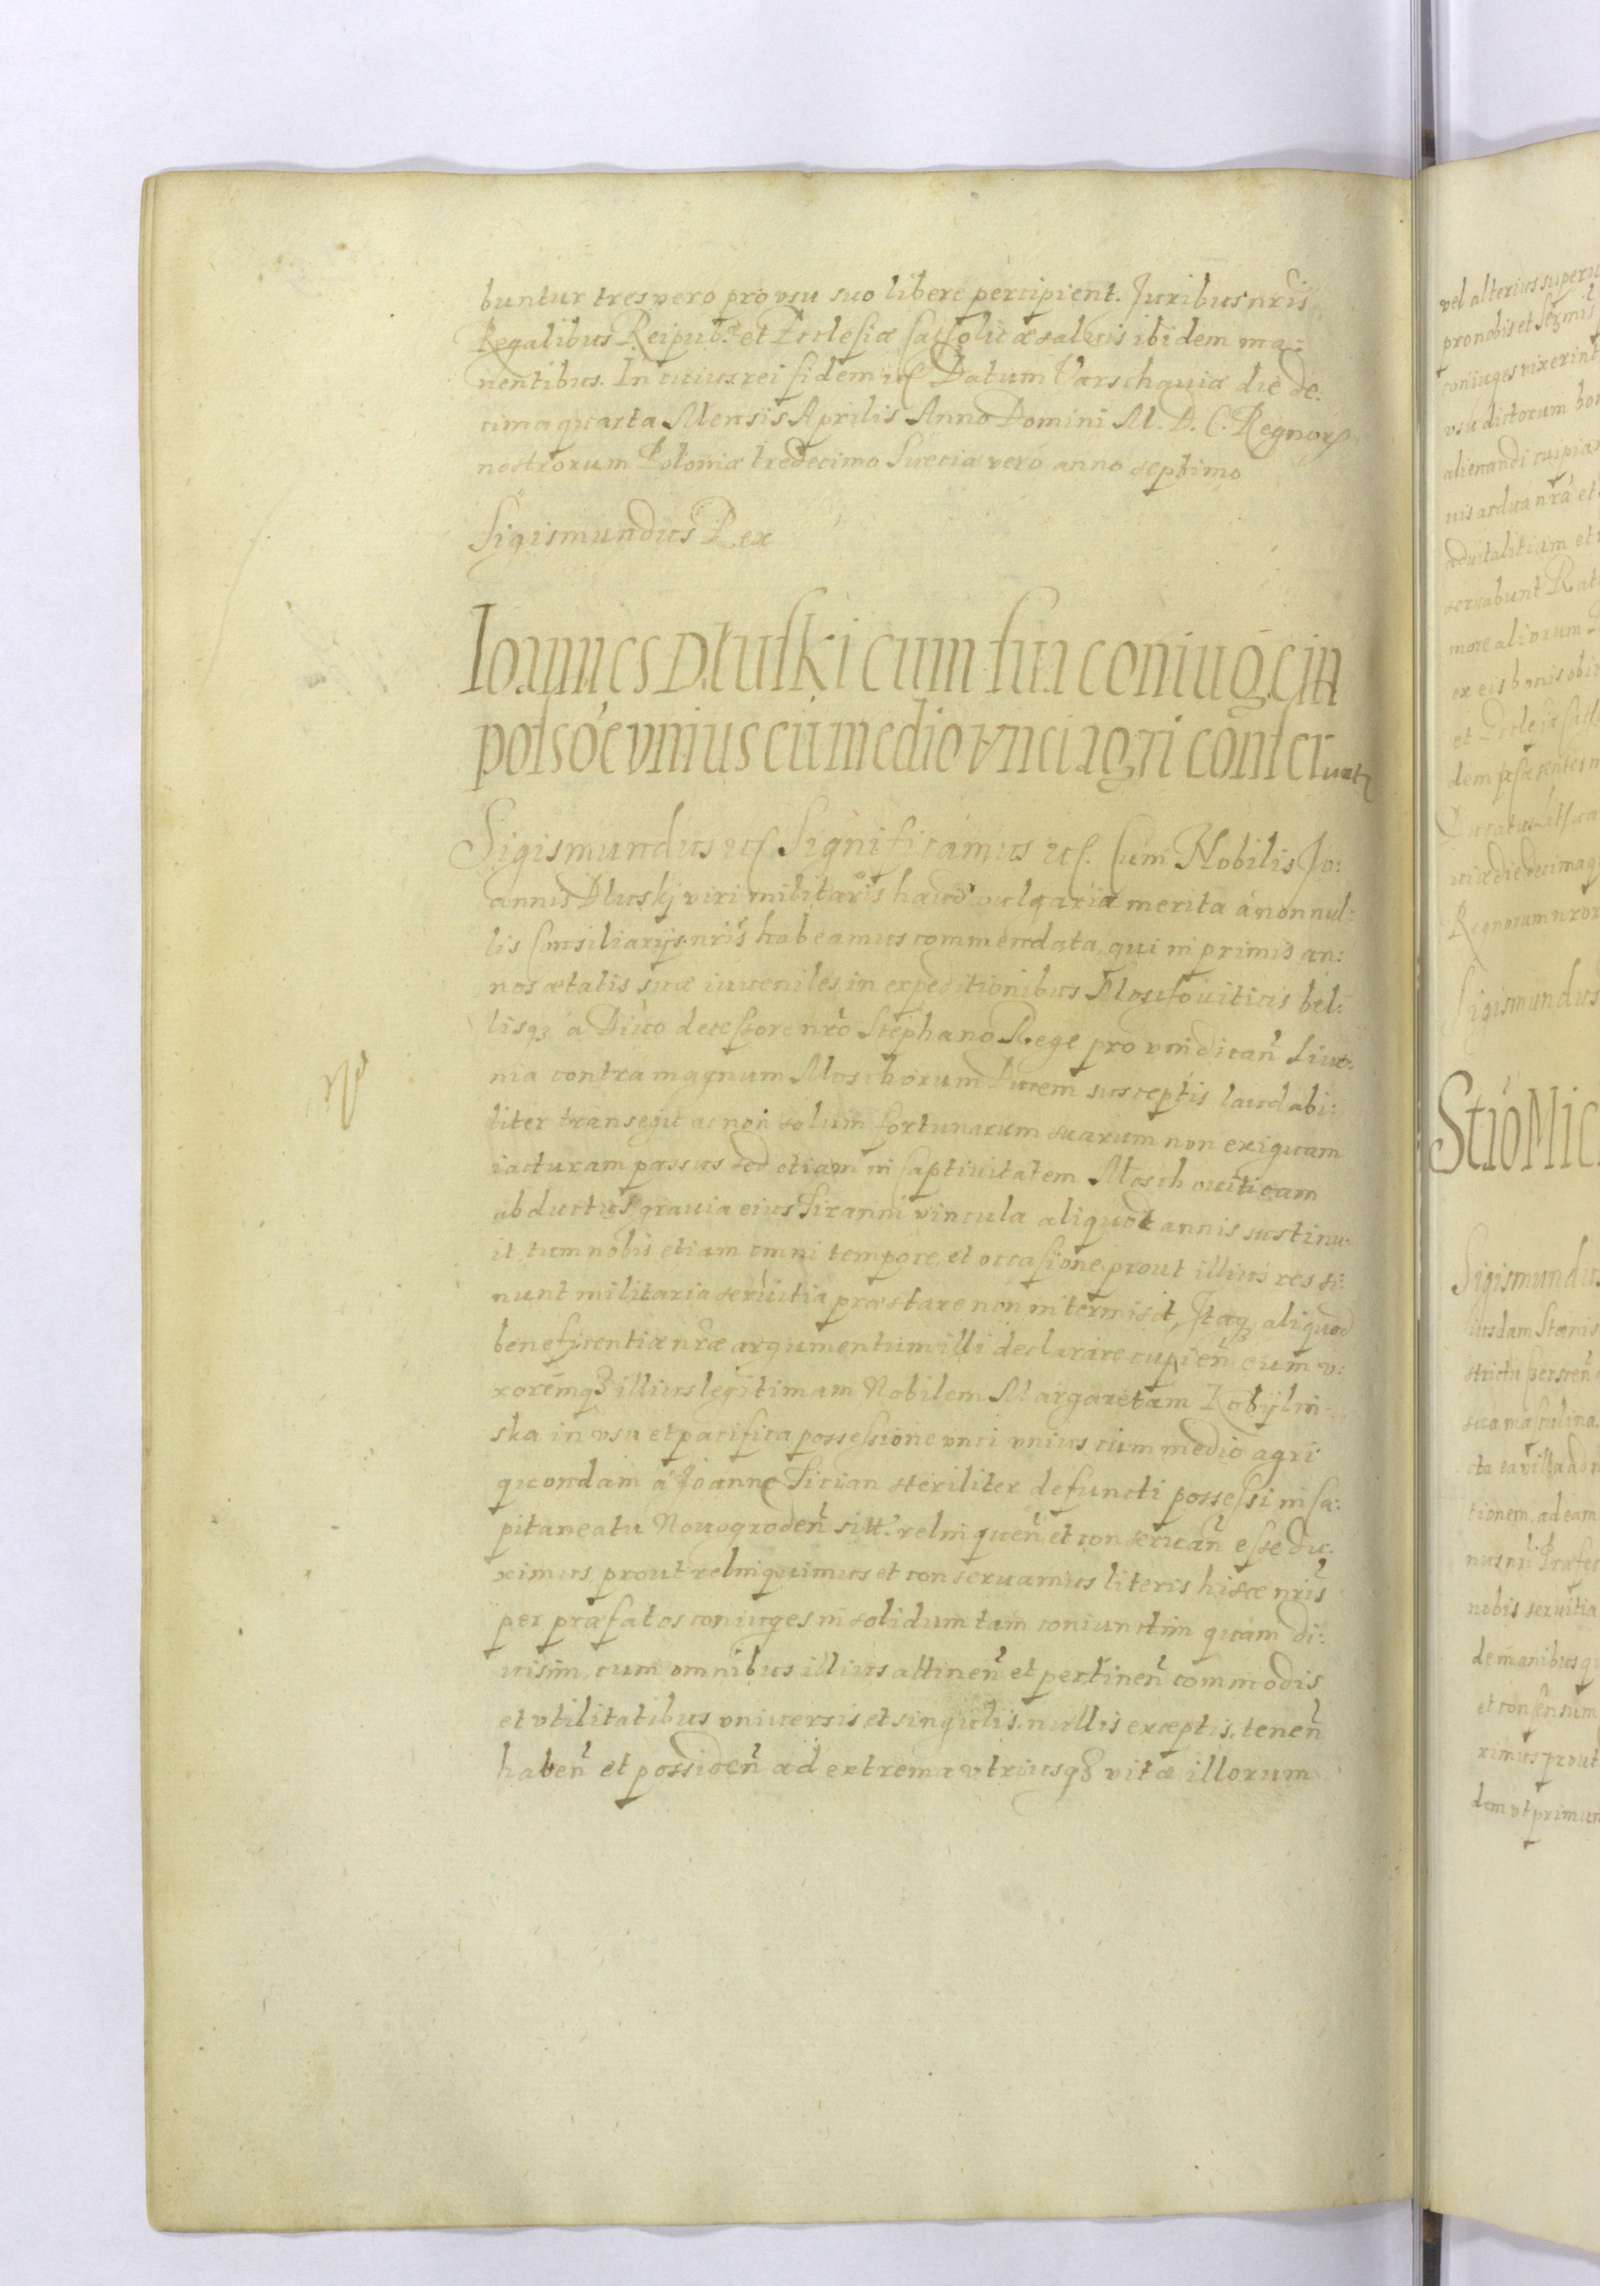 buntur tres vero pro vsu suo libere percipient. Juribus nr̃is
Regalibus Reipub. et Ecclesiæ Catholicæ salvis ibidem ma:
nentibus. In cuius rei fidem etc Datum Varschaviæ die de.
cima quarta Mensis Aprilis Anno Domini M. D. C. Regnorꝝ
nostrorum Poloniæ tredecimo Sueciæ vero anno septimo
Sigismundus Rex
Ioannes Dłuski cum sua coniuge in
possoe vnius cũ medio vnci agri conser
uatꝛ
Sigismundus etc Significamus etc. Cum Nobilis Jo:
annis Dluskj viri militaris haud vulgaria merita á nonnul:
lis Consiliarijs nr̃is habeamus commendata, qui in primis an:
nos ætatis suæ iuueniles in expeditionibus Moschouiticis bel:
lisqꝫ a Diuo decessore nr̃o Stephano Rege pro vindicañ Liuo:
nia contra magnum Moschorum Ducem susceptis laudabi:
liter transegit ac non solum fortunarum suarum non exiguam
iacturam passus sed etiam in captiuitatem Moschouiticam
abductus grauia eius Tiranni vincula aliquot annis sustinu.
it, tum nobis etiam omni tempore et occasione prout illius res si:
nunt militaria seruitia præstare non intermisit, Itaqꝫ aliquod
beneficentiæ nr̃æ argumentum illi declarare cupieñ eum v:
xoremqꝫ illius legitimam Nobilem Margaretam Kobylin
ska in vsu et pacifica possessione vnci vnius cum medio agri
quondam á Joanne Sician steriliter defuncti possessi in Ca:
pitaneatu Nouogrodeñ sitt. relinqueñ et conseruañ esse du.
ximus prout relinquimus et conseruamus literis hisce nr̃is
per præfatos coniuges in solidum tam coniunctim quam di:
uisim, cum omnibus illius attineñ et pertineñ commodis
et vtilitatibus vniuersis et singulis, nullis exceptis, teneñ
habeñ et possideñ ad extrema vtriusqꝫ vitæ illorum
vel alterius super
pro nobis et
coniuges vixerint
vsu dictorum bo
alienandi cuspia
uis ardua nr̃a et
aduitalitiam et
seruabunt Rat
more aliorum
ex eis bonis
et Ecclesiæ Cath
dem
uiæ die decima q
Regnorum nror
Sigismundus
Stio Mic
Sigismundus
strictu
sua masculina
cta ea villa
tionem, ad eam
nobis seruitia
de manibus q
et consensum
ximus prout
dem vt primum